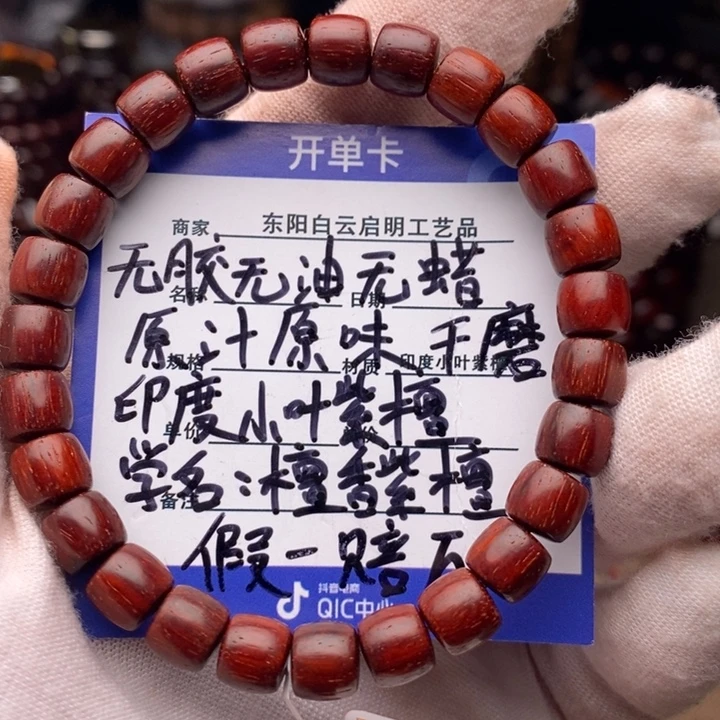 开单卡
商家 东阳白云启明工艺品
无胶无油无蜡
名称 日期
原汁原味手磨
规格 材质 印度小叶紫檀
印度小叶紫檀
单价
学名:檀香紫檀
备注
假一赔
抖音电商
QIC中心